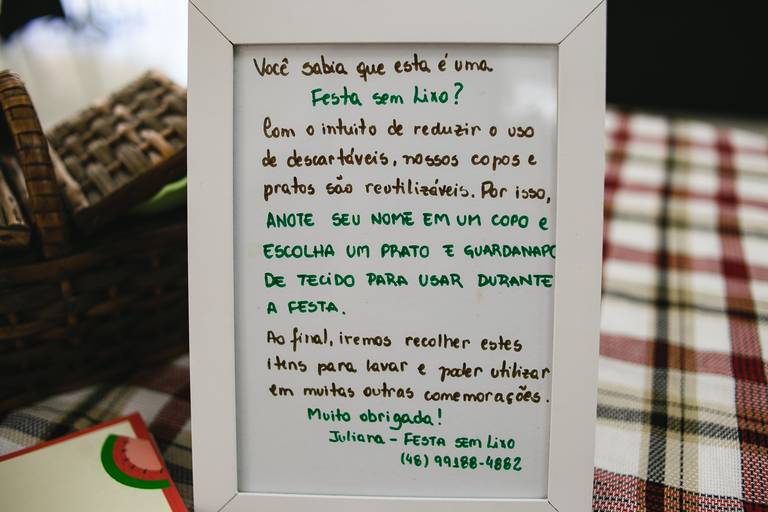 Você sabia que esta é uma
Festa sem Lixo?
Com o intuito de reduzir o uso
de descartáveis, nossos copos e
pratos são reutilizáveis. Por isso,
ANOTE SEU NOME EM UM COPO e
ESCOLHA UM PRATO E GUARDANAPO
DE TECIDO PARA USAR DURANTE
A FESTA.
Ao final, iremos recolher estes
itens para lavar e poder utilizar
em muitas outras comemorações.
Muito obrigada!
Juliana - FESTA SEM LIXO
(48) 99188-4882